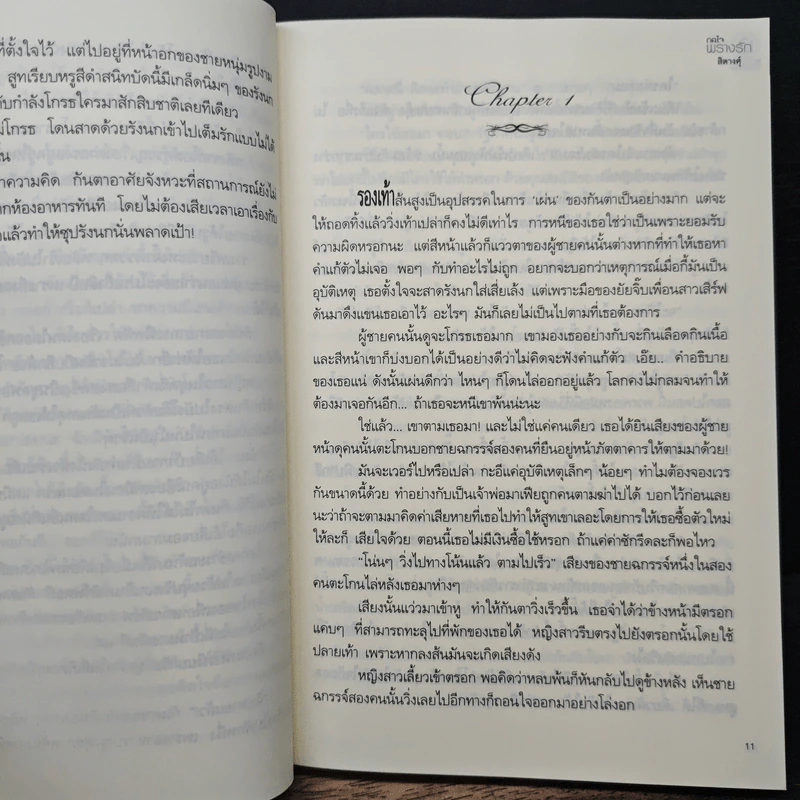 ที่ตั้งใจไว้ แต่ไปอยู่ที่หน้าอกของชายหนุ่มรูปงาม
สูทเรียบหรูสีดำสนิทบัดนี้มีเกล็ดนิ่มๆ ของรังนก
กำลังโกรธใครมาสักสิบชาติเลยทีเดียว
โกรธ โดนสาดด้วยรังนกเข้าไปเต็มรักแบบไม่ได้
ความคิด กันตาอาศัยจังหวะที่สถานการณ์ยังไม่
ห้องอาหารทันที โดยไม่ต้องเสียเวลาเอาเรื่องกับ
แล้วทำให้ซุปรังนกนั่นพลาดเป้า!
กลใจ
พรางรัก
สิตางศุ์
Chapter 1
รองเท้าส้นสูงเป็นอุปสรรคในการ ‘เผ่น’ ของกันตาเป็นอย่างมาก แต่จะ
ให้ถอดทิ้งแล้ววิ่งเท้าเปล่าก็คงไม่ดีเท่าไร การหนีของเธอใช่ว่าเป็นเพราะยอมรับ
ความผิดหรอกนะ แต่สีหน้าแล้วก็แววตาของผู้ชายคนนั้นต่างหากที่ทำให้เธอหา
คำแก้ตัวไม่เจอ พอๆ กับทำอะไรไม่ถูก อยากจะบอกว่าเหตุการณ์เมื่อกี้มันเป็น
อุบัติเหตุ เธอตั้งใจจะสาดรังนกใส่เสี่ยเล้ง แต่เพราะมือของยัยจิ๊บเพื่อนสาวเสิร์ฟ
ดันมาดึงแขนเธอเอาไว้ อะไรๆ มันก็เลยไม่เป็นไปตามที่เธอต้องการ
ผู้ชายคนนั้นดูจะโกรธเธอมาก เขามองเธออย่างกับจะกินเลือดกินเนื้อ
และสีหน้าเขาก็บ่งบอกได้เป็นอย่างดีว่าไม่คิดจะฟังคำแก้ตัว เอ๊ย.. คำอธิบาย
ของเธอแน่ ดังนั้นเผ่นดีกว่า ไหนๆ ก็โดนไล่ออกอยู่แล้ว โลกคงไม่กลมจนทำให้
ต้องมาเจอกันอีก... ถ้าเธอจะหนีเขาพ้นน่ะนะ
ใช่แล้ว... เขาตามเธอมา! และไม่ใช่แค่คนเดียว เธอได้ยินเสียงของผู้ชาย
หน้าดุคนนั้นตะโกนบอกชายฉกรรจ์สองคนที่ยืนอยู่หน้าภัตตาคารให้ตามมาด้วย!
มันจะเวอร์ไปหรือเปล่า กะอีแค่อุบัติเหตุเล็กๆ น้อยๆ ทำไมต้องจองเวร
กันขนาดนี้ด้วย ทำอย่างกับเป็นเจ้าพ่อมาเฟียถูกคนตามฆ่าไปได้ บอกไว้ก่อนเลย
นะว่าถ้าจะตามมาคิดค่าเสียหายที่เธอไปทำให้สูทเขาเลอะโดยการให้เธอซื้อตัวใหม่
ให้ละก็ เสียใจด้วย ตอนนี้เธอไม่มีเงินซื้อใช้หรอก ถ้าแค่ค่าซักรีดละก็พอไหว
“โน่นๆ วิ่งไปทางโน้นแล้ว ตามไปเร็ว” เสียงของชายฉกรรจ์หนึ่งในสอง
คนตะโกนไล่หลังเธอมาห่างๆ
เสียงนั้นแว่วมาเข้าหู ทำให้กันตาวิ่งเร็วขึ้น เธอจำได้ว่าข้างหน้ามีตรอก
แคบๆ ที่สามารถทะลุไปที่พักของเธอได้ หญิงสาวรีบตรงไปยังตรอกนั้นโดยใช้
ปลายเท้า เพราะหากลงส้นมันจะเกิดเสียงดัง
หญิงสาวเลี้ยวเข้าตรอก พอคิดว่าหลบพ้นก็หันกลับไปดูข้างหลัง เห็นชาย
ฉกรรจ์สองคนนั้นวิ่งเลยไปอีกทางก็ถอนใจออกมาอย่างโล่งอก
11